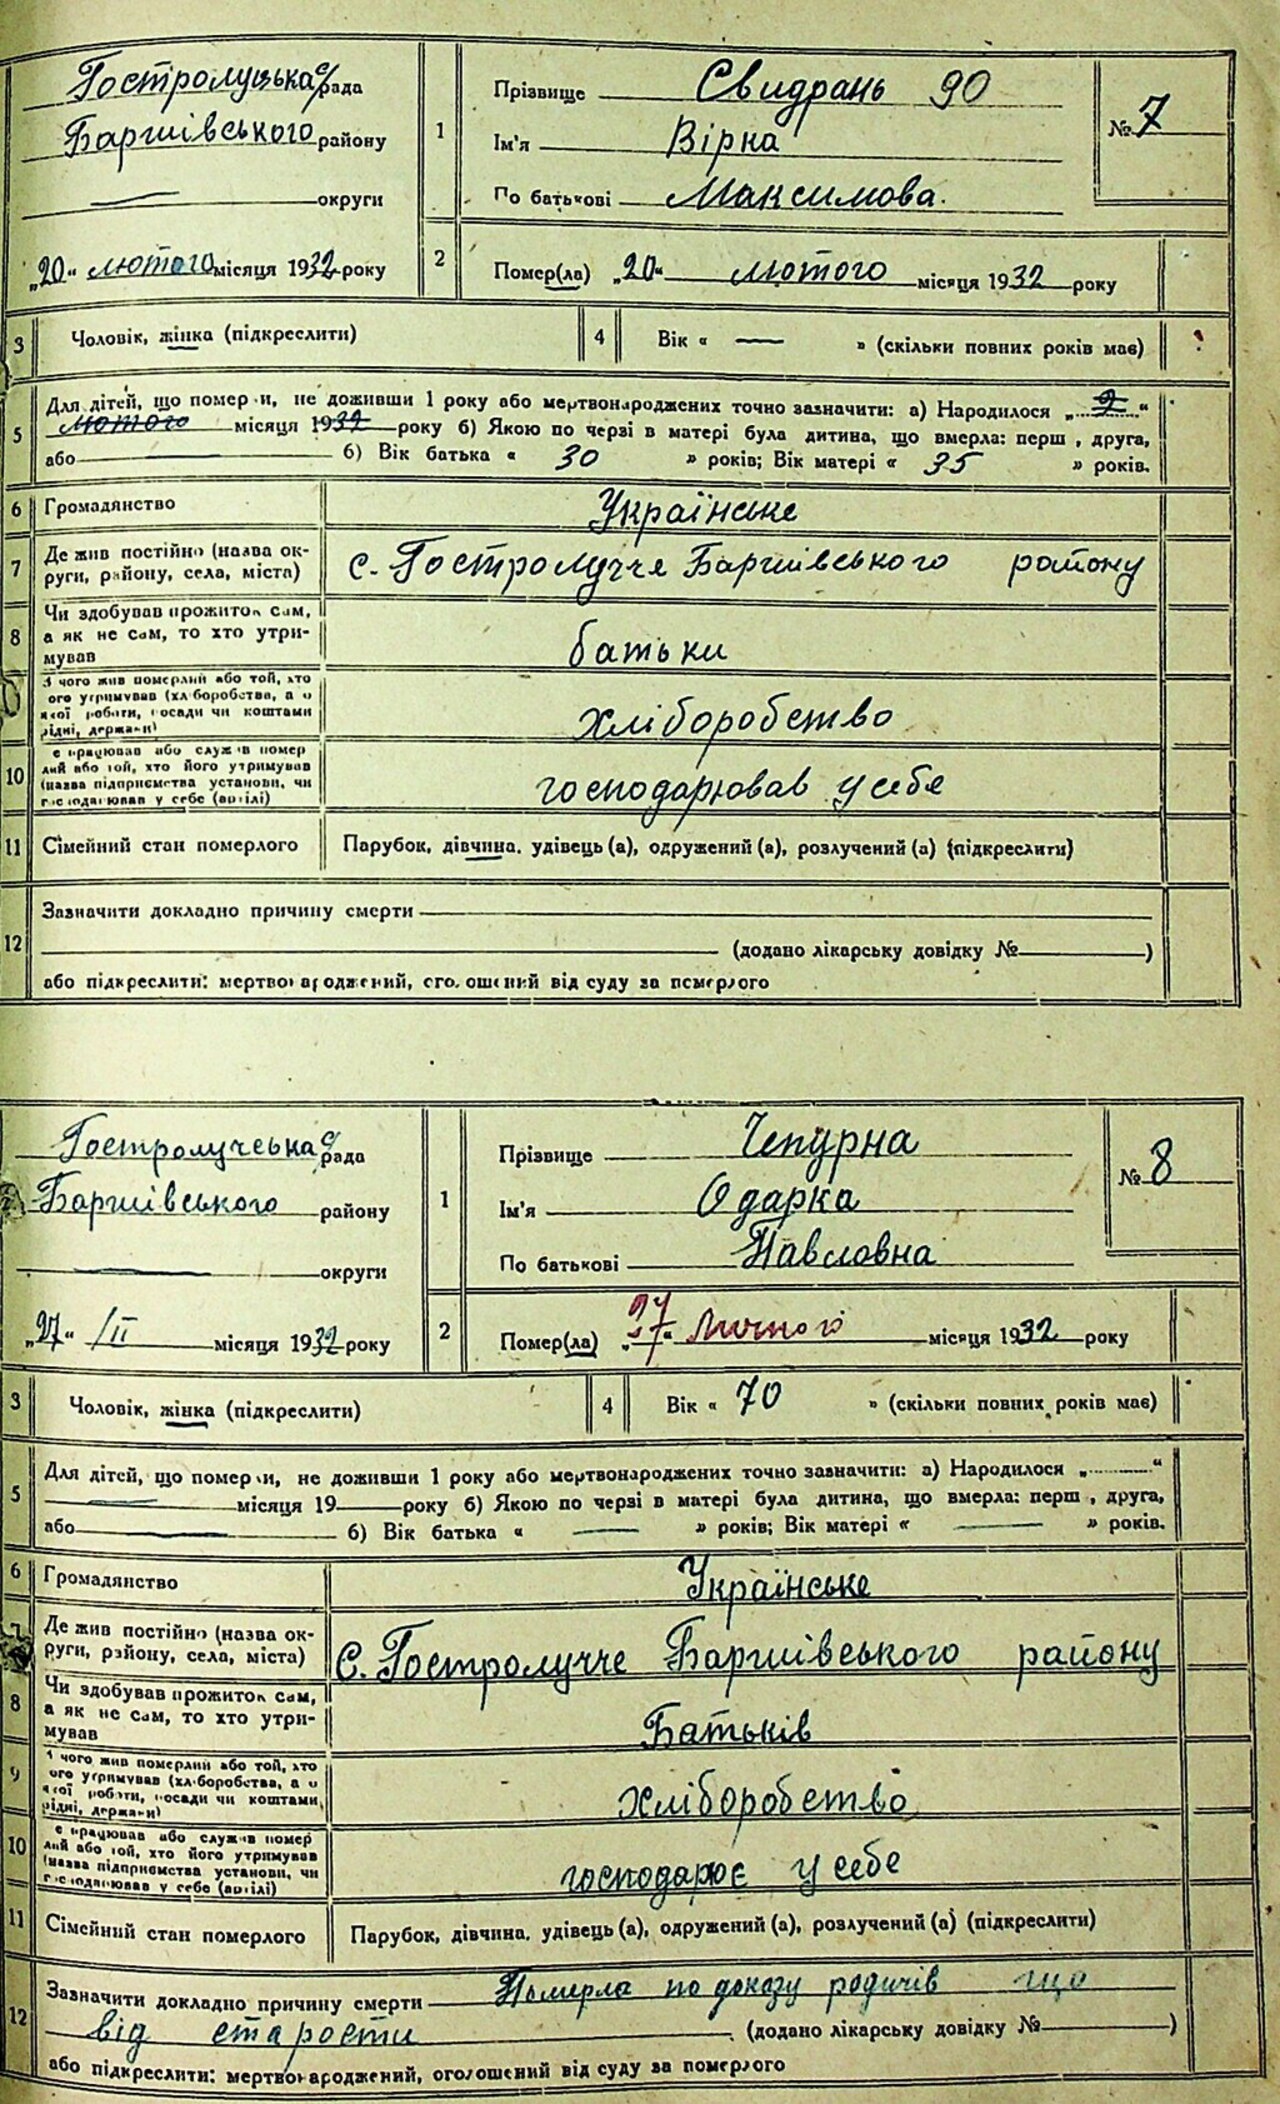 Гостролуцька с/рада
Баришівського району
округи
„20“ лютого місяця 1932 року
1
Прізвище Свидрань 90
Ім'я Вірка
По батькові Максимова.
№ 7
2
Помер(ла) „20“ лютого місяця 1932 року
3 Чоловік, жінка (підкреслити)
4 Вік « — » (скільки повних років має)
5 Для дітей, що помер и, не доживши 1 року або мертвонароджених точно зазначити: а) Народилося „2“
лютого місяця 1932 року б) Якою по черзі в матері була дитина, що вмерла: перш , друга,
або б) Вік батька « 30 » років; Вік матері « 35 » років.
6 Громадянство Українське
7 Де жив постійно (назва ок-
руги, району, села, міста) с. Гостролуччя Баришівського району
8 Чи здобував прожиток сам,
а як не сам, то хто утри-
мував батьки
З чого жив померлий або той, хто
ого утримував (хл боробства, а о
якої роботи, посади чи коштами
рідні, держави) хліборобство
10 е працював або служив помер
лий або той, хто його утримував
(назва підприємства установи, чи
господарював у себе (вділі) господарював у себе
11 Сімейний стан померлого Парубок, дівчина, удівець (а), одружений (а), розлучений (а) (підкреслити)
12 Зазначити докладно причину смерти
(додано лікарську довідку № )
або підкреслити: мертвонароджений, оголошений від суду за померлого
Гостролучська с/рада
Баришівського району
округи
„27“ /II місяця 1932 року
1
Прізвище Чепурна
Ім'я Одарка
По батькові Павловна
№ 8
2
Помер(ла) „27“ Лютого місяця 1932 року
3 Чоловік, жінка (підкреслити)
4 Вік « 70 » (скільки повних років має)
5 Для дітей, що помер и, не доживши 1 року або мертвонароджених точно зазначити: а) Народилося „ “
місяця 19 року б) Якою по черзі в матері була дитина, що вмерла: перш , друга,
або б) Вік батька « — » років; Вік матері « — » років.
6 Громадянство Українське
7 Де жив постійно (назва ок-
руги, району, села, міста) С. Гостролучче Баришівського району
8 Чи здобував прожиток сам,
а як не сам, то хто утри-
мував Батьків
9 З чого жив померлий або той, хто
ого утримував (хл боробства, а о
якої роботи, посади чи коштами
рідні, держави) хліборобство
10 е працював або служив помер
лий або той, хто його утримував
(назва підприємства установи, чи
господарював у себе (вділі) господарює у себе
11 Сімейний стан померлого Парубок, дівчина, удівець (а), одружений (а), розлучений (а) (підкреслити)
12 Зазначити докладно причину смерти Померла по доказу родичів що
від старости (додано лікарську довідку № )
або підкреслити: мертвонароджений, оголошений від суду за померлого